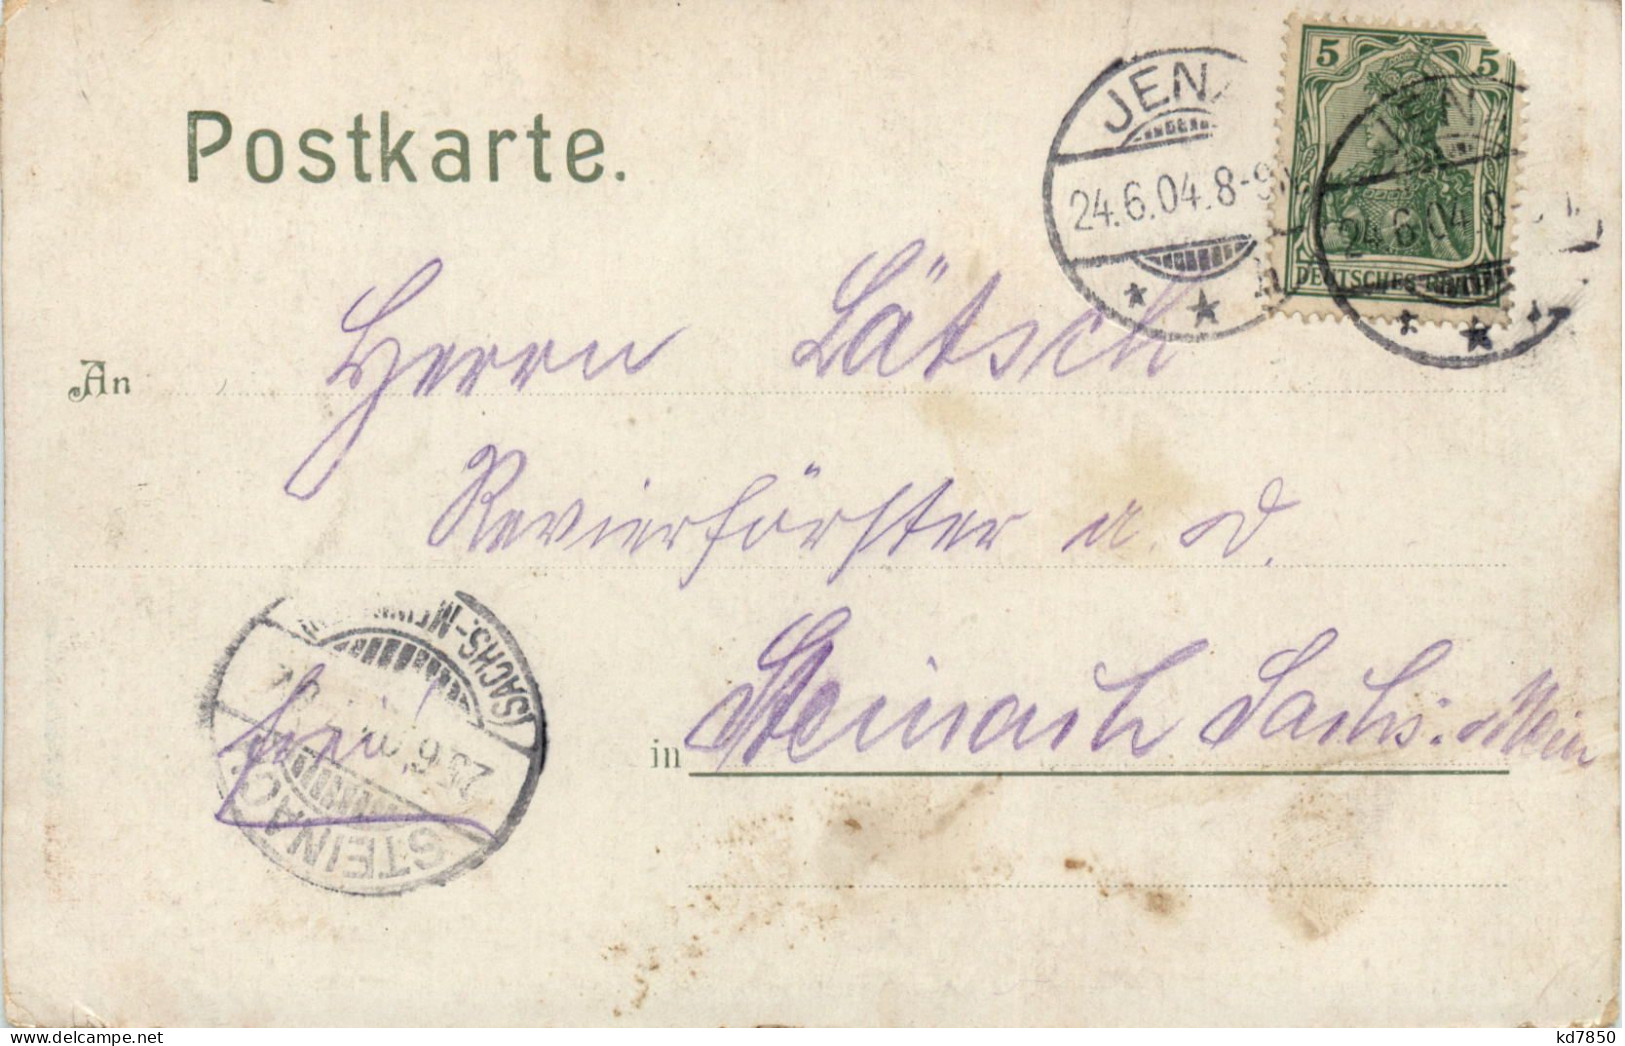 Postkarte.
JENA
24.6.04.8-9
5 5
DEUTSCHES REICH
JENA
24.6.04.8-
An Herrn Lätsch
Revierförster a. D.
in Steinach Sachs. Mein
frei!
(SACHS.-MEIN
25.6.
STEINACH
kd7850